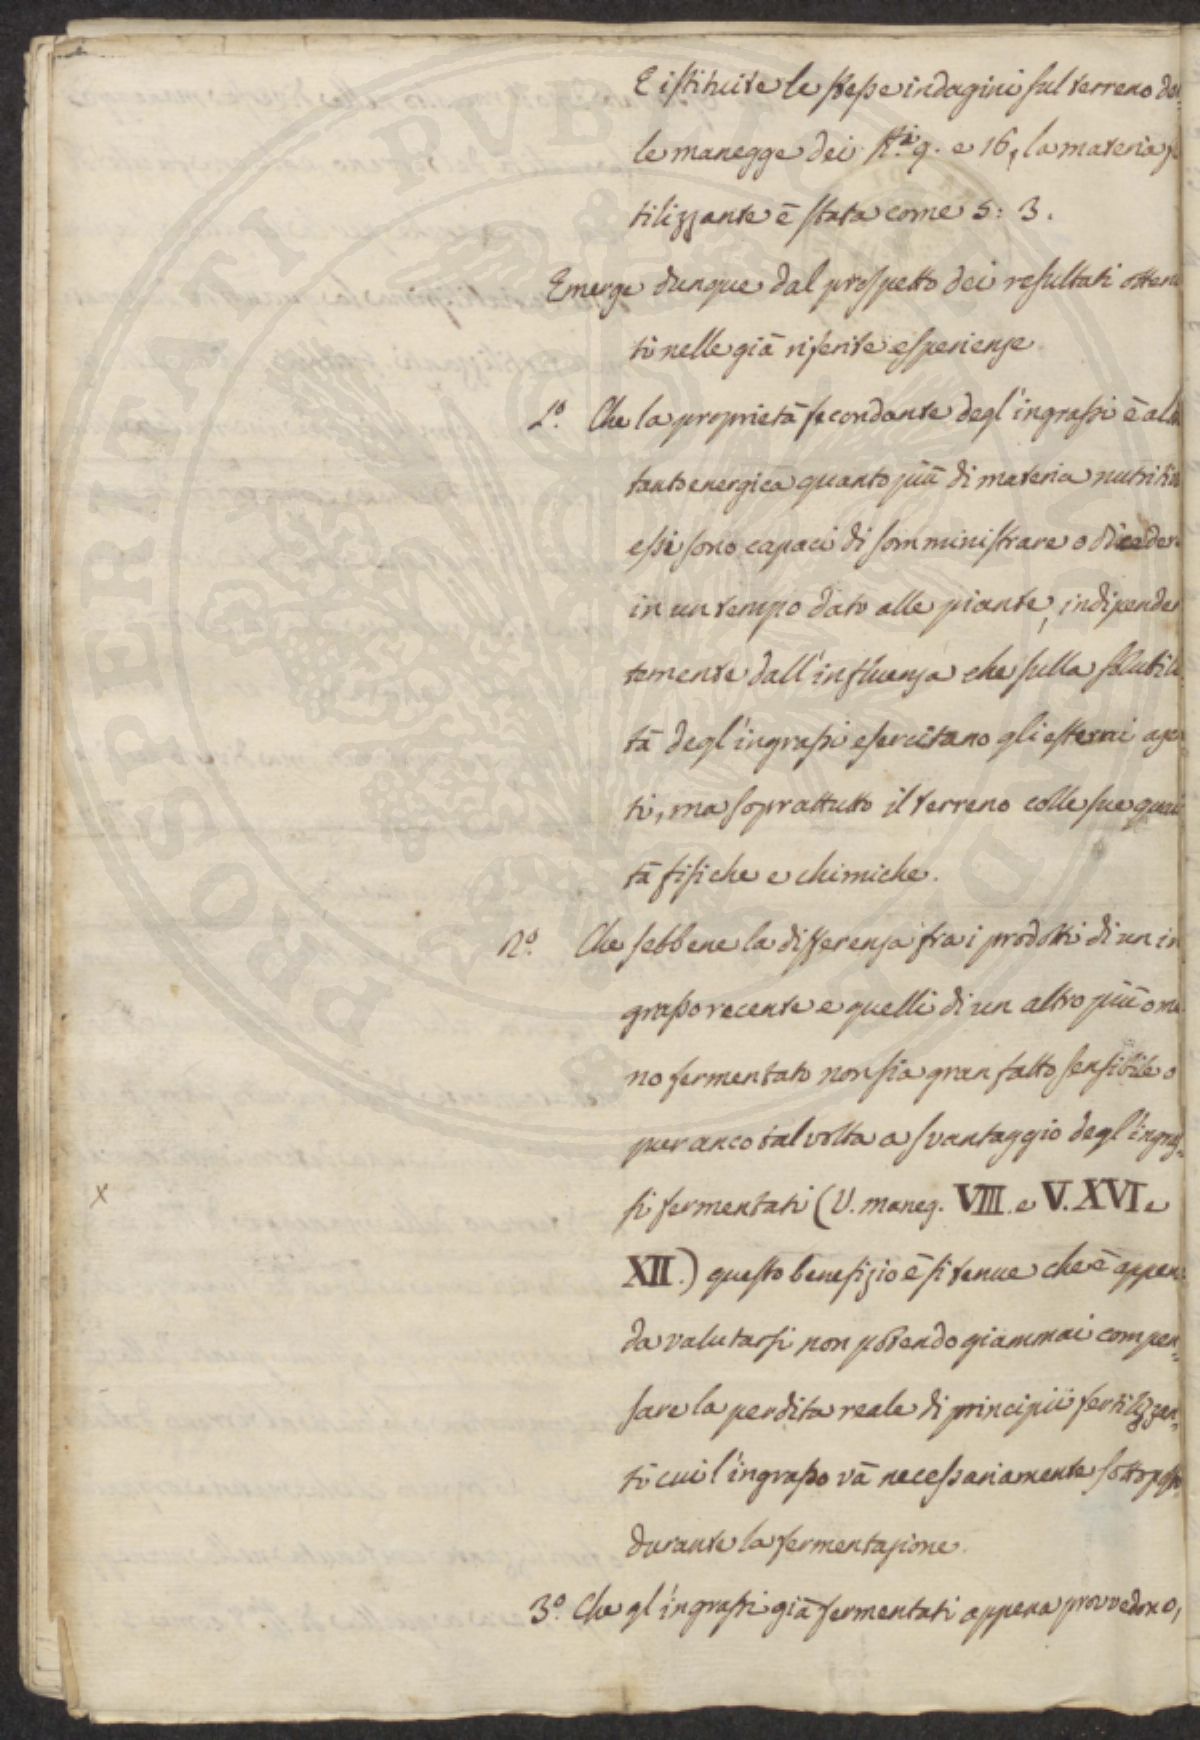 E istituite le stesse indagini sul terreno del
le manegge dei N.ⁱ 9. e 16, la materia fe
tilizzante è stata come 5: 3.
Emerge dunque dal prospetto dei resultati ottenu
ti nelle già riferite esperienze
1.º Che la proprietà fecondante degl'ingrassi è al
tanto energica quanto più di materia nutritiva
essi sono capaci di somministrare o di ceder
in un tempo dato alle piante, indipenden
temente dall'influenza che sulla solubili
tà degl'ingrassi esercitano gli esterni agen
ti, ma soprattutto il terreno colle sue quali
tà fisiche e chimiche.
2.º Che sebbene la differenza fra i prodotti di un in
grasso recente e quelli di un altro più o me
no fermentato non sia gran fatto sensibile o
per anco talvolta a svantaggio degl'ingras=
si fermentati (V. maneg. VIII. e V. XVI e
XII.) questo benefizio è si tenue che è appena
da valutarsi non potendo giammai compen=
sare la perdita reale di principii fertilizzan=
ti cui l'ingrasso và necessariamente sottoposto
durante la fermentazione.
3.º Che gl'ingrassi già fermentati appena provvedono,
x
PROSPERITATI PVBLICAE